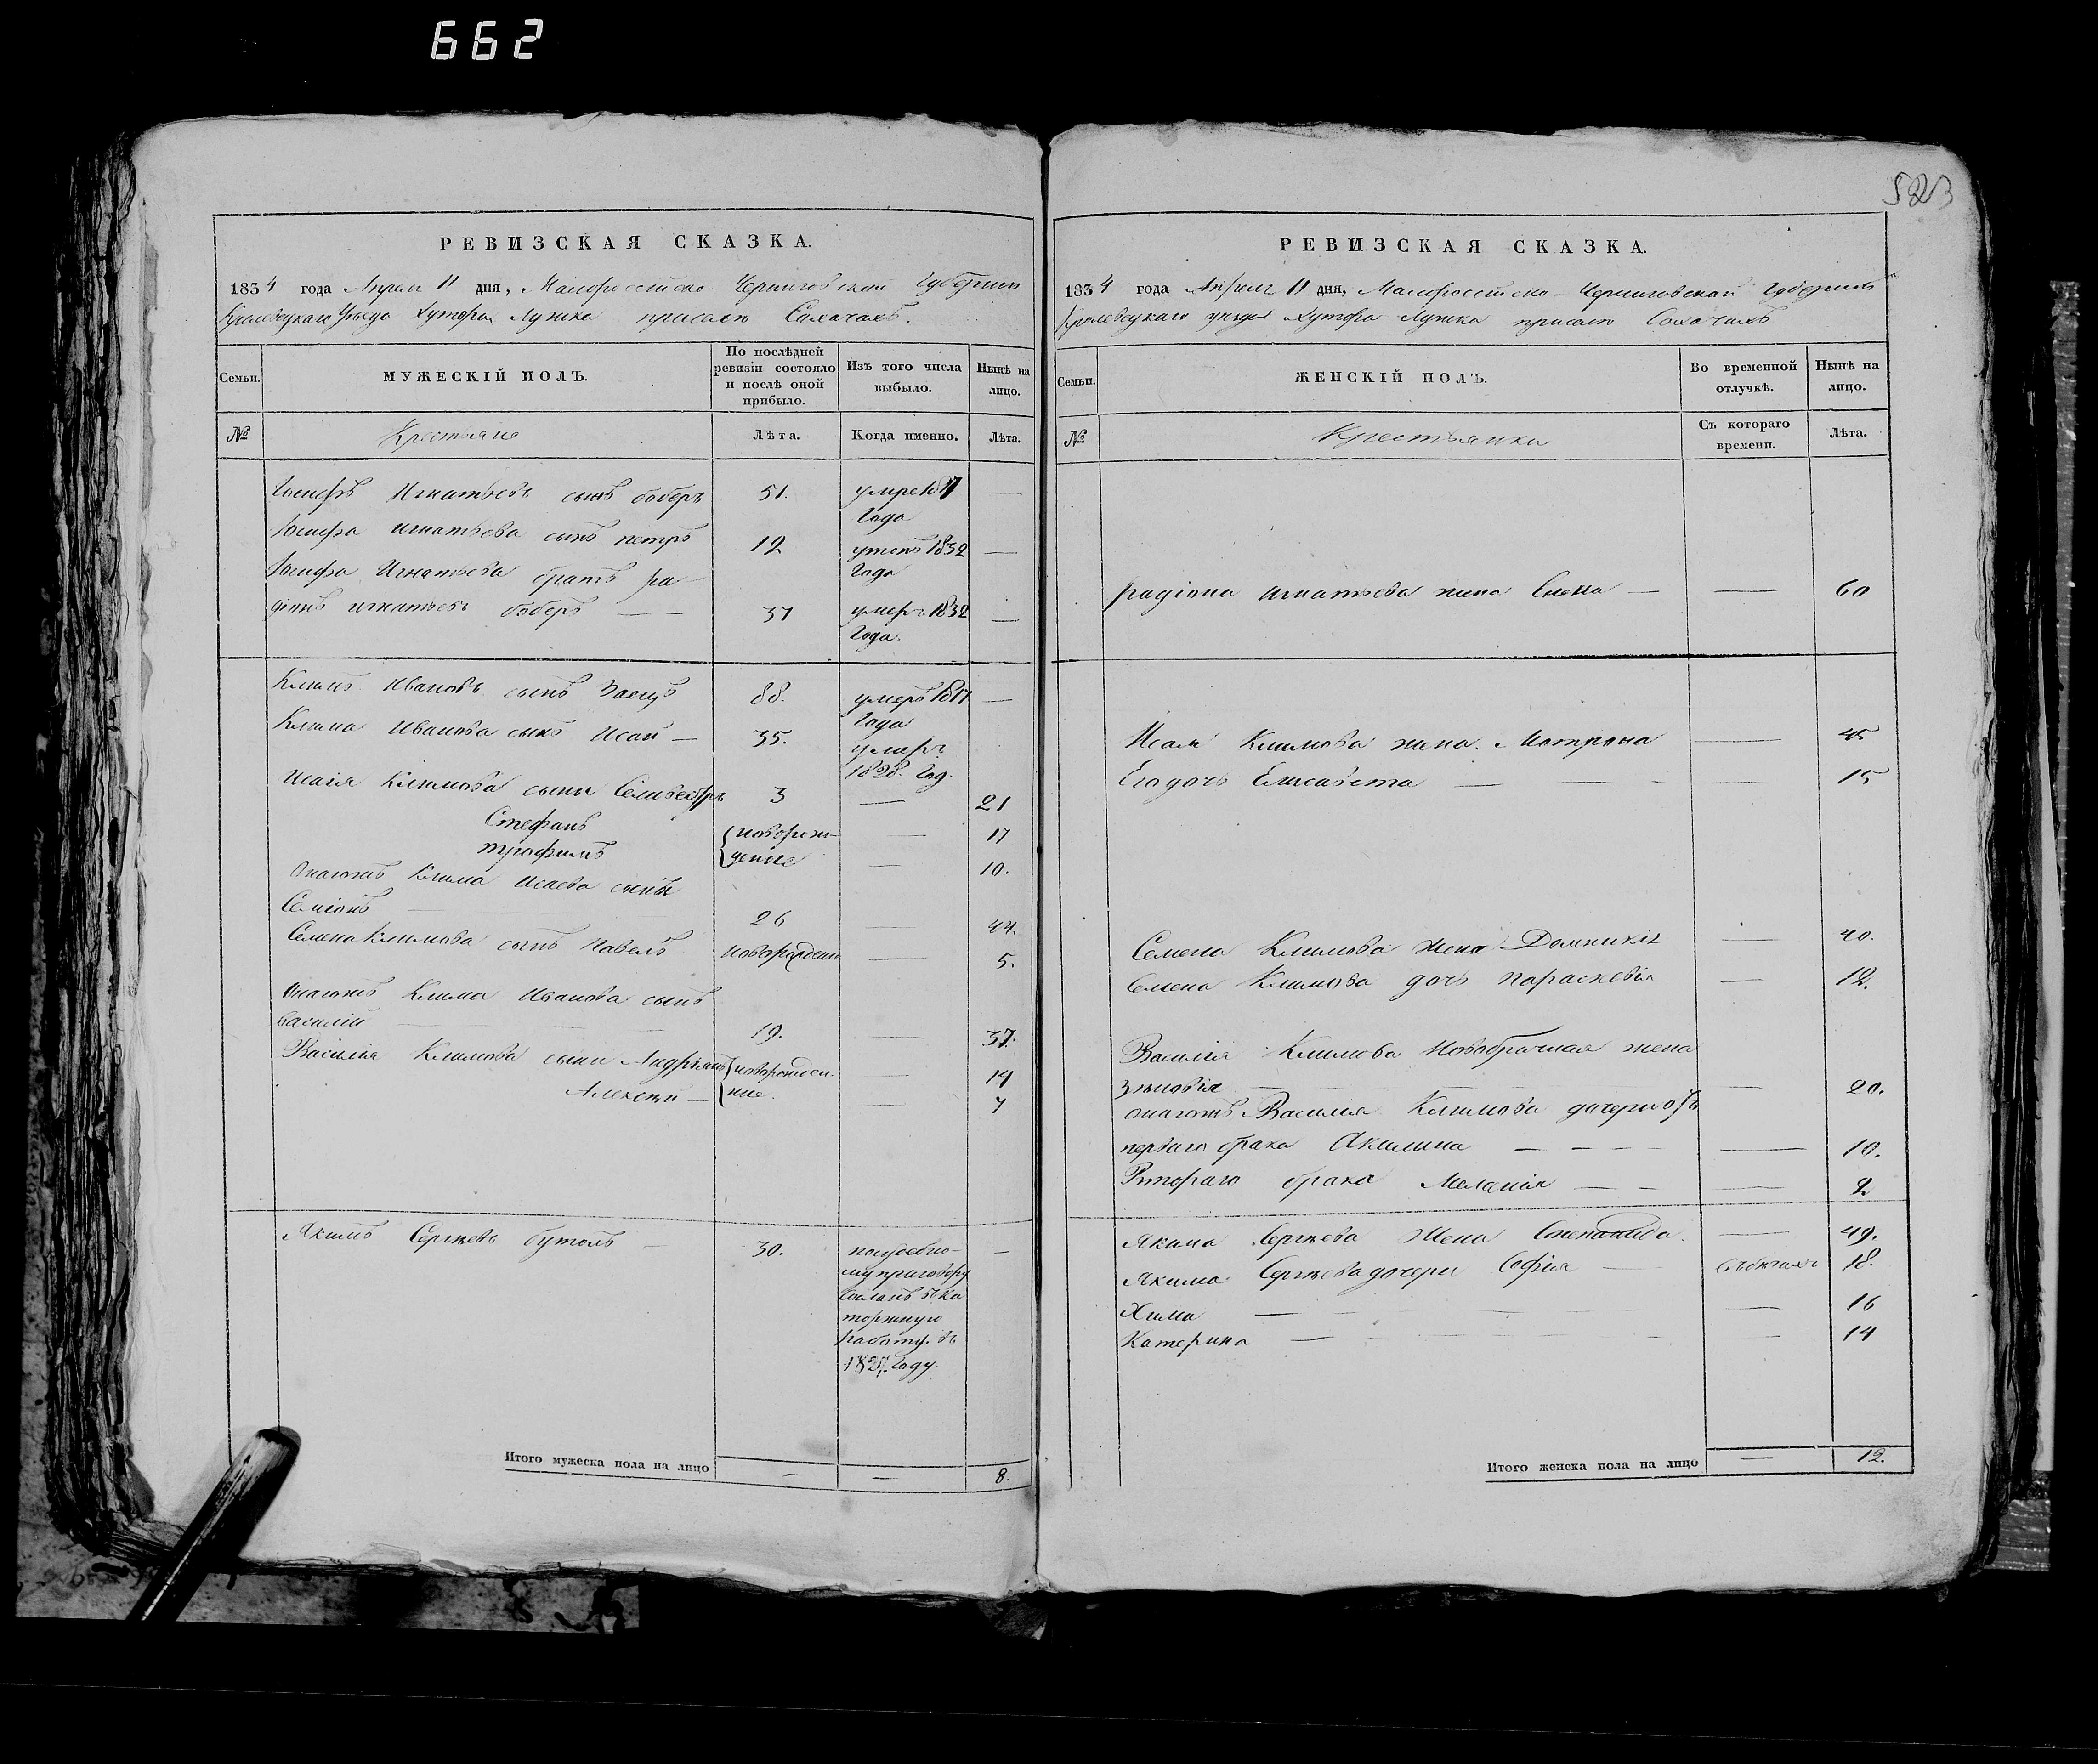 662
523
РЕВИЗСКАЯ СКАЗКА.
1834 года Апреля 11 дня, Малороссійско-Черниговской Губерніи
Кролевецкаго Уезда Хутора Лужка
МУЖЕСКІЙ ПОЛЪ.
Семьи.
По послѣдней ревизіи состояло и послѣ оной прибыло.
Изъ того числа выбыло.
Нынѣ на лицо.
№
Крестьяне
Лѣта.
Когда именно.
Лѣта.
Іосифъ Игнатьевъ сынъ боберъ 51. умре 1817 Года —
Іосифа Игнатьева сынъ петръ 12 1832 Года —
Іосифа Игнатьева братъ ра-
діонъ игнатьевъ боберъ — — 37 умеръ 1832 Года. —
Климъ Ивановъ сынъ Заецъ 88. умеръ 1817 Года —
Клима Иванова сынъ Исай — 35. умеръ 1828. Год.
Исаія Климова сыны Селивестръ 3 — 21
Стефанъ новорож- — 17
трофимъ денные — 10.
Онагожъ Клима Исаева сынъ
Семіонъ — 26 — 44.
Семена Климова сынъ Павелъ новорожденъ — 5.
Онагожъ Клима Иванова сынъ
Василій — — — 19. — 37.
Василія Климова сыны Андріянъ новорожден- — 14
Алексѣй — ные. — 7
Якимъ Сергѣевъ бутомъ — 30. посудебно- —
му приговору
сосланъ въ ка
торжную
работу. въ
1827 Году.
Итого мужеска пола на лицо — — 8.
РЕВИЗСКАЯ СКАЗКА.
1834 года Апреля 11 дня, Малороссійско-Черниговской Губерніи
Кролевецкаго уезда Хутора Лужка
Семьи.
ЖЕНСКІЙ ПОЛЪ.
Во временной отлучкѣ.
Нынѣ на лицо.
№
Крестьянки
Съ котораго времени.
Лѣта.
радіона игнатьева жена — — 60
Исаія Климова жена Матрона — 45
Егодочь Елисавета — — — — 15
Семена Климова жена Домникія — 40.
Семена Климова дочь Параскевія — 12.
Василія Климова Новобрачная жена
Зѣновія — — — — 20.
онагожъ Василія Климова дочери отъ
перваго брака Акилина — — — — — 10.
Втораго брака Меланія — — — 2
Якима Сергѣева Жена Степанида. — 49.
Якима Сергѣева дочери Софія — въбѣгахъ 18.
Хима — — — — — 16
Катерина — — — — — 14
Итого женска пола на лицо — 12.